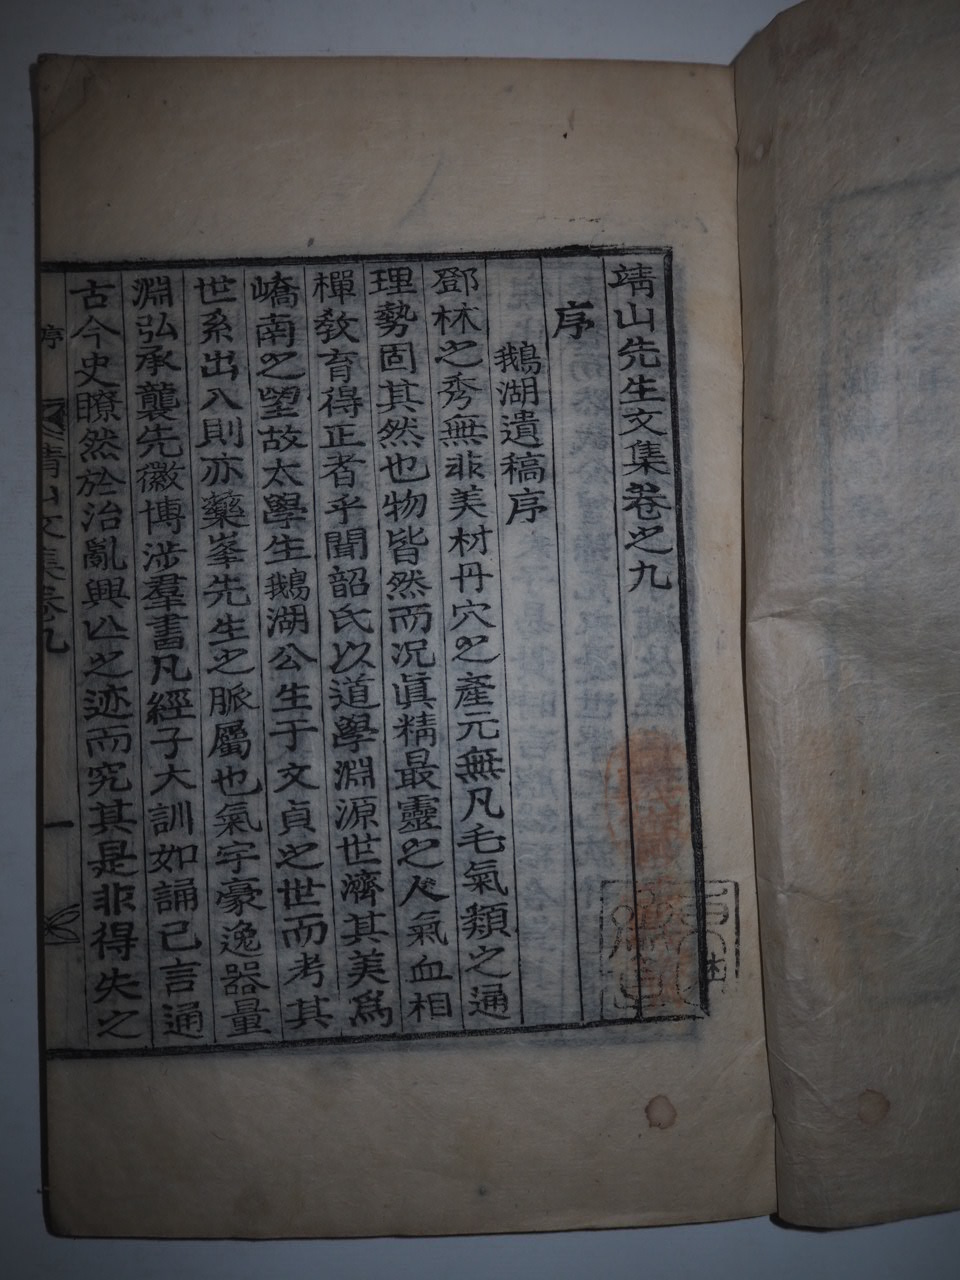 靖山先生文集卷之九
序
鵝湖遺稿序
鄧林之秀無非美材丹穴之產元無凡毛氣類之通
理勢固其然也物皆然而況眞精最靈之人氣血相
禪敎育得正者乎聞韶氏以道學淵源世濟其美爲
嶠南之望故太學生鵝湖公生于文貞之世而考其
世系出入則亦藥峯先生之脈屬也氣宇豪逸器量
淵弘承襲先徽博涉羣書凡經子大訓如誦己言通
古今史瞭然於治亂興亾之迹而究其是非得失之
序
靖山文集卷九
一